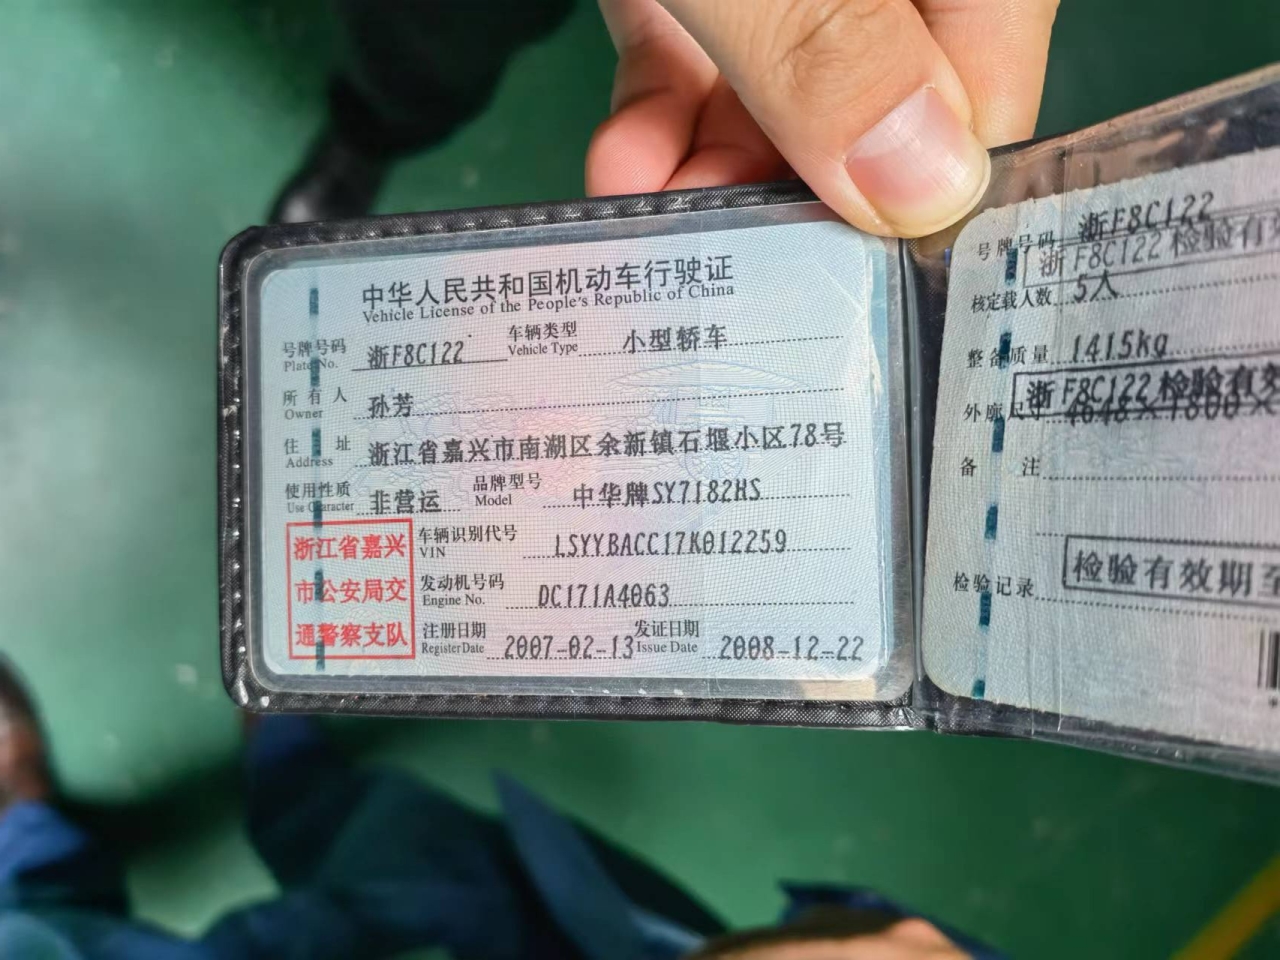 中华人民共和国机动车行驶证
Vehicle License of the People's Republic of China
号牌号码 浙F8C122 车辆类型 小型轿车
Plate No. Vehicle Type
所有人 孙芳
Owner
住址 浙江省嘉兴市南湖区余新镇石堰小区78号
Address
使用性质 非营运 品牌型号 中华牌SY7182HS
Use Character Model
浙江省嘉兴
市公安局交
通警察支队
车辆识别代号 LSYYBACC17K012259
VIN
发动机号码 DC171A4063
Engine No.
注册日期 2007-02-13 发证日期 2008-12-22
Register Date Issue Date
号牌号码 浙F8C122
浙F8C122检验有
核定载人数 5人
整备质量 1415kg
浙F8C122检验有
外廓尺寸
备注
检验记录 检验有效期至